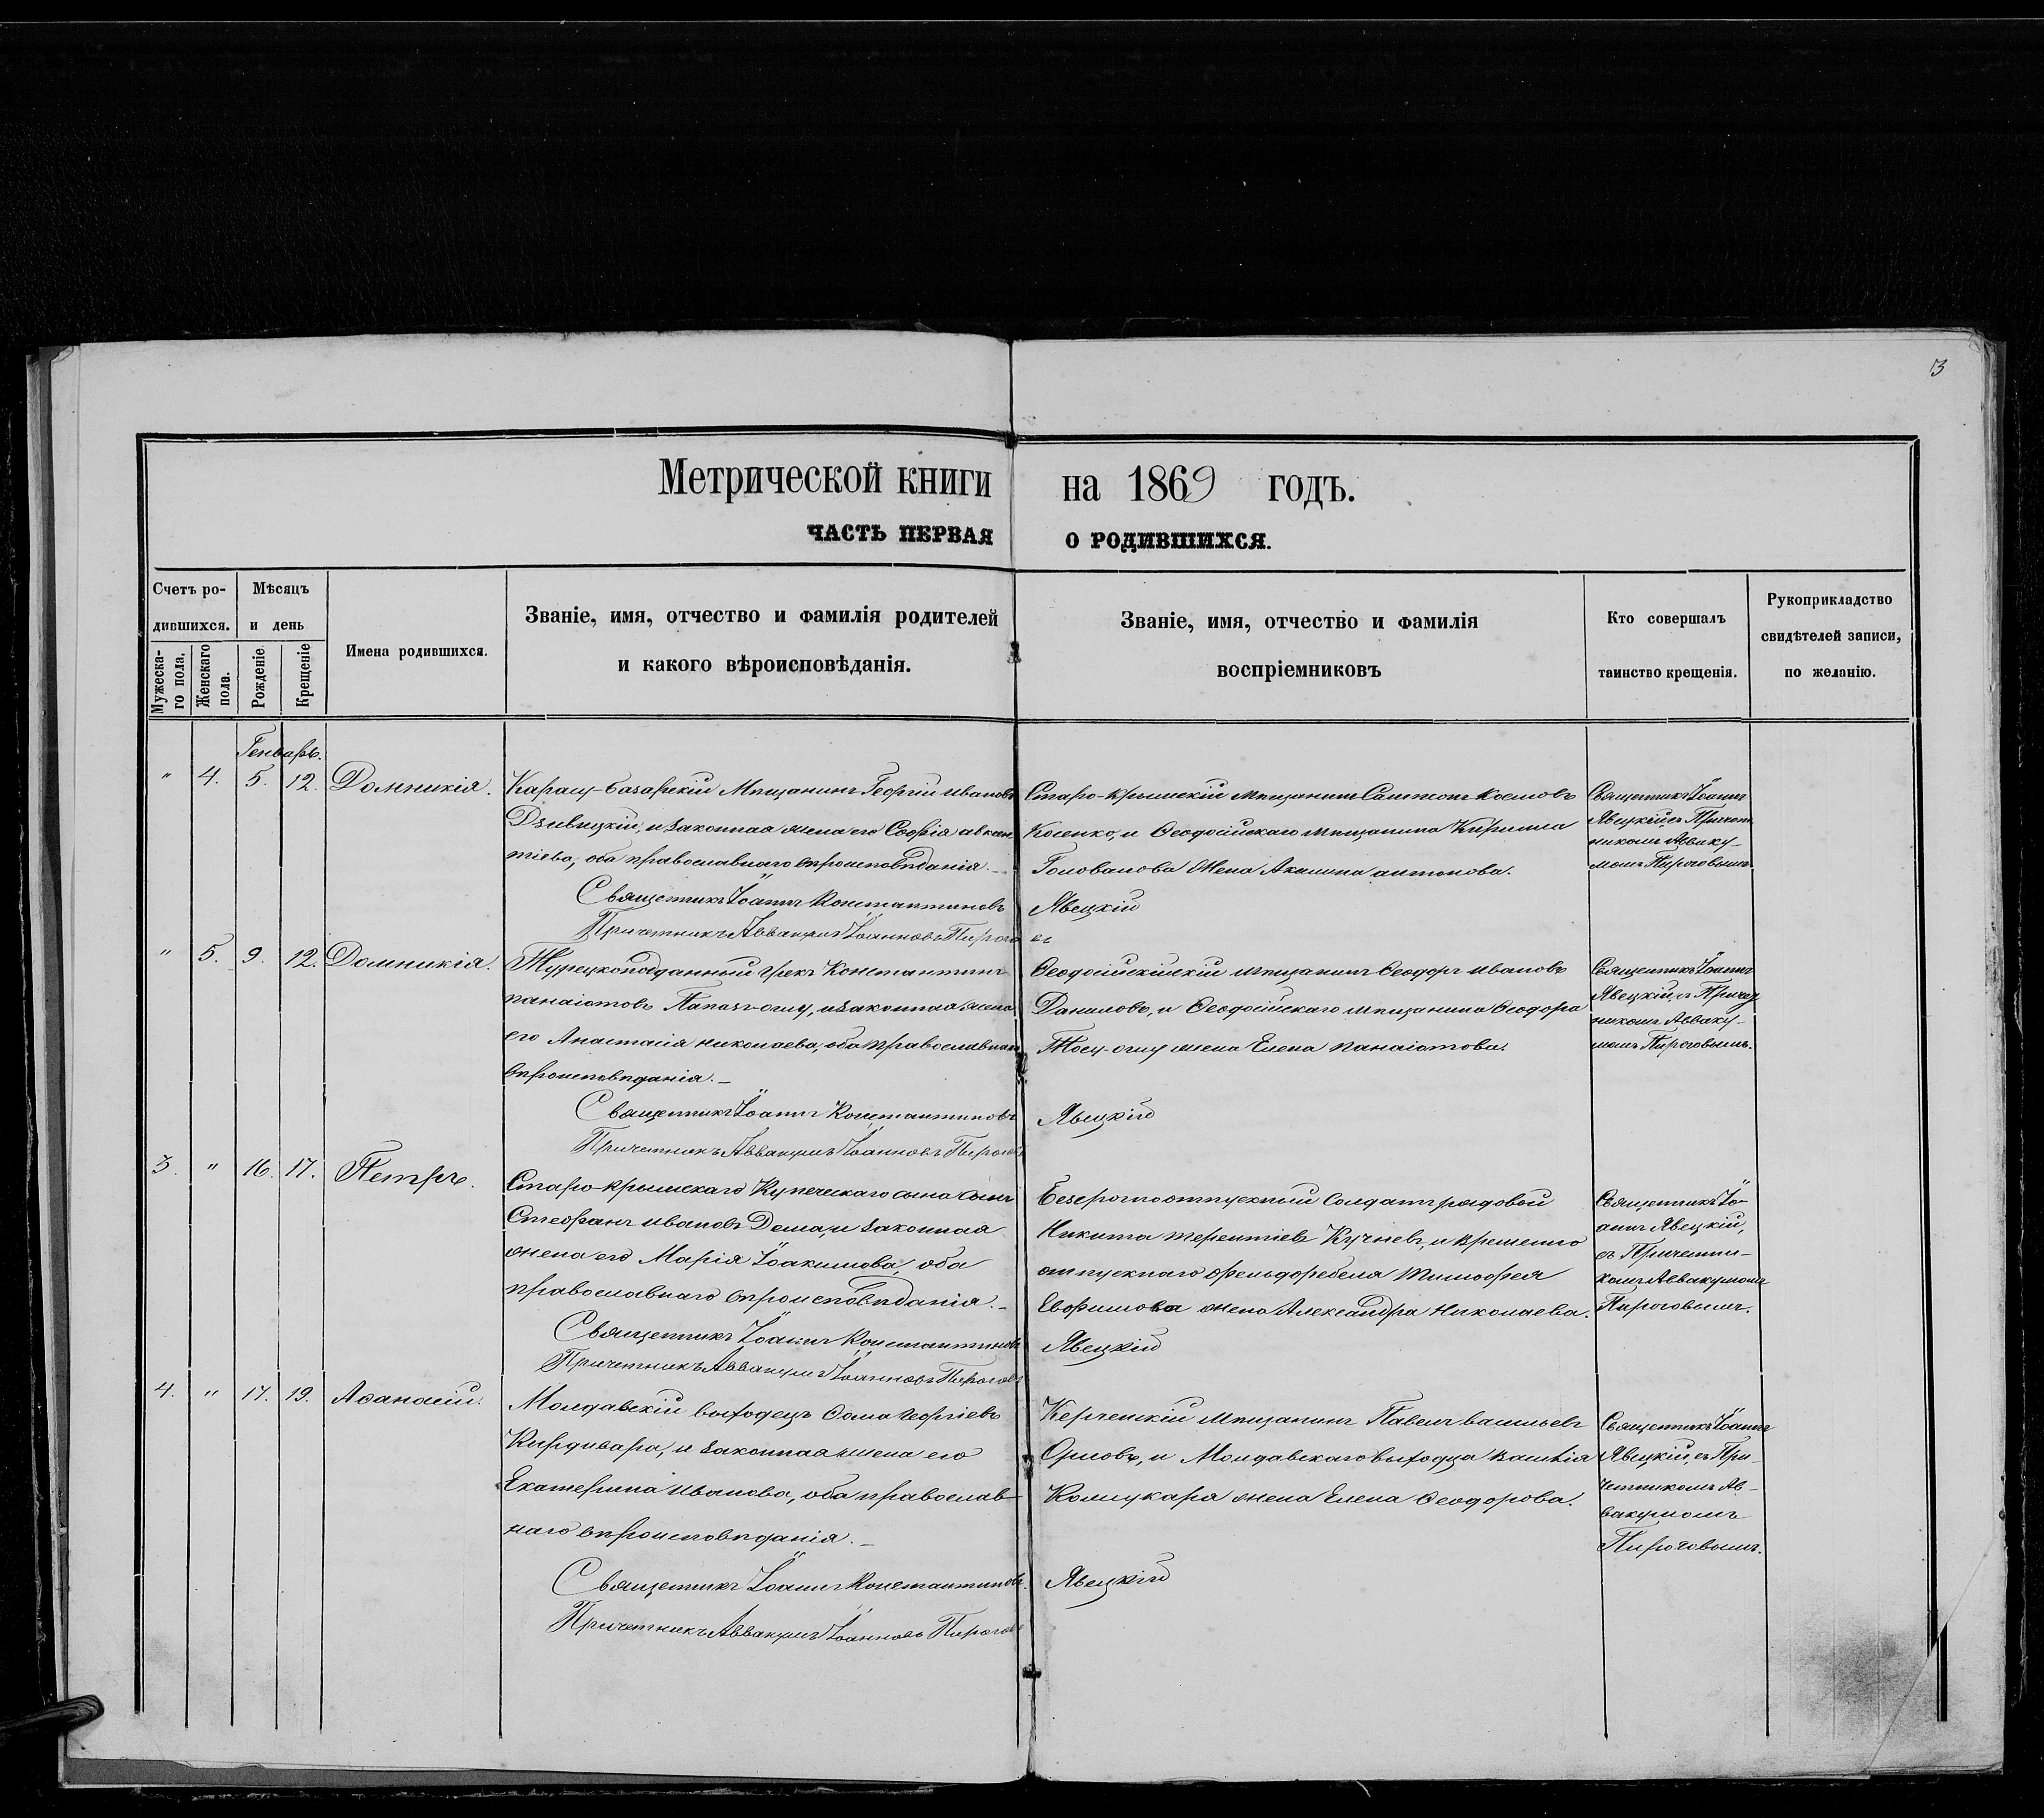 3
Метрической книги на 1869 годъ.
ЧАСТЬ ПЕРВАЯ О РОДИВШИХСЯ.
Счетъ ро-
дившихся.
Мужеска-
го пола.
Женскаго
пола.
Мѣсяцъ
и день
Рожденіе.
Крещеніе
Имена родившихся.
Званіе, имя, отчество и фамилія родителей
и какого вѣроисповѣданія.
Званіе, имя, отчество и фамилія
воспріемниковъ
Кто совершалъ
таинство крещенія.
Рукоприкладство
свидѣтелей записи,
по желанію.
Генварь.
" 4. 5. 12. Домникія.
Карасу-базарскій Мѣщанинъ Георгій ивановъ
и законная жена его Софія
оба православнаго вѣроисповѣданія._
Священникъ Іоаннъ Константиновъ Явецкій
Причетникъ Аввакумъ Іоанновъ Пироговъ
Старо-крымскій мѣщанинъ Космовъ
Косенко, и Ѳеодосійскаго мѣщанина Кирилла
Голованова жена Акилина антонова.
Священникъ Іоаннъ
Явецкій, съ Причет
никомъ Авваку-
момъ Пироговымъ
" 5. 9. 12. Домникія.
Турецкоподданный грекъ Константинъ
панаіотовъ Папазъ-оглу, и законная жена
его Анастасія николаева, оба православнаго
вѣроисповѣданія._
Священникъ Іоаннъ Константиновъ Явецкій
Причетникъ Аввакумъ Іоанновъ Пироговъ
мѣщанинъ Ѳеодоръ ивановъ
Даниловъ, и Ѳеодосійскаго мѣщанина Ѳеодора
жена Елена панаіотова.
Священникъ Іоаннъ
Явецкій, съ Причет
никомъ Авваку-
момъ Пироговымъ.
3. " 16. 17. Петръ.
Старо-крымскаго Купеческаго сына сынъ
Стефанъ ивановъ Дема, и законная
жена его Марія Іоакимова, оба
православнаго вѣроисповѣданія._
Священникъ Іоаннъ Константиновъ Явецкій
Причетникъ Аввакумъ Іоанновъ Пироговъ
Безсрочноотпускный солдатъ рядовой
Никита терентіевъ Кучневъ, и временно
отпускнаго фельдфебеля тимофея
Евфимова жена Александра Николаева.
Священникъ Іо-
аннъ Явецкій,
съ Причетни-
комъ Аввакумомъ
Пироговымъ.
4. " 17. 19. Аѳанасій.
Молдавскій выходецъ Ѳома Георгіевъ
Кирдивара, и законная жена его
Екатерина иванова, оба православ-
наго вѣроисповѣданія._
Священникъ Іоаннъ Константиновъ Явецкій
Причетникъ Аввакумъ Іоанновъ Пироговъ
Керченскій мѣщанинъ Павелъ васильевъ
Орловъ, и Молдавскаго выходца василія
жена Елена Ѳеодорова.
Священникъ Іоаннъ
Явецкій, съ При-
четникомъ Ав-
вакумомъ
Пироговымъ.